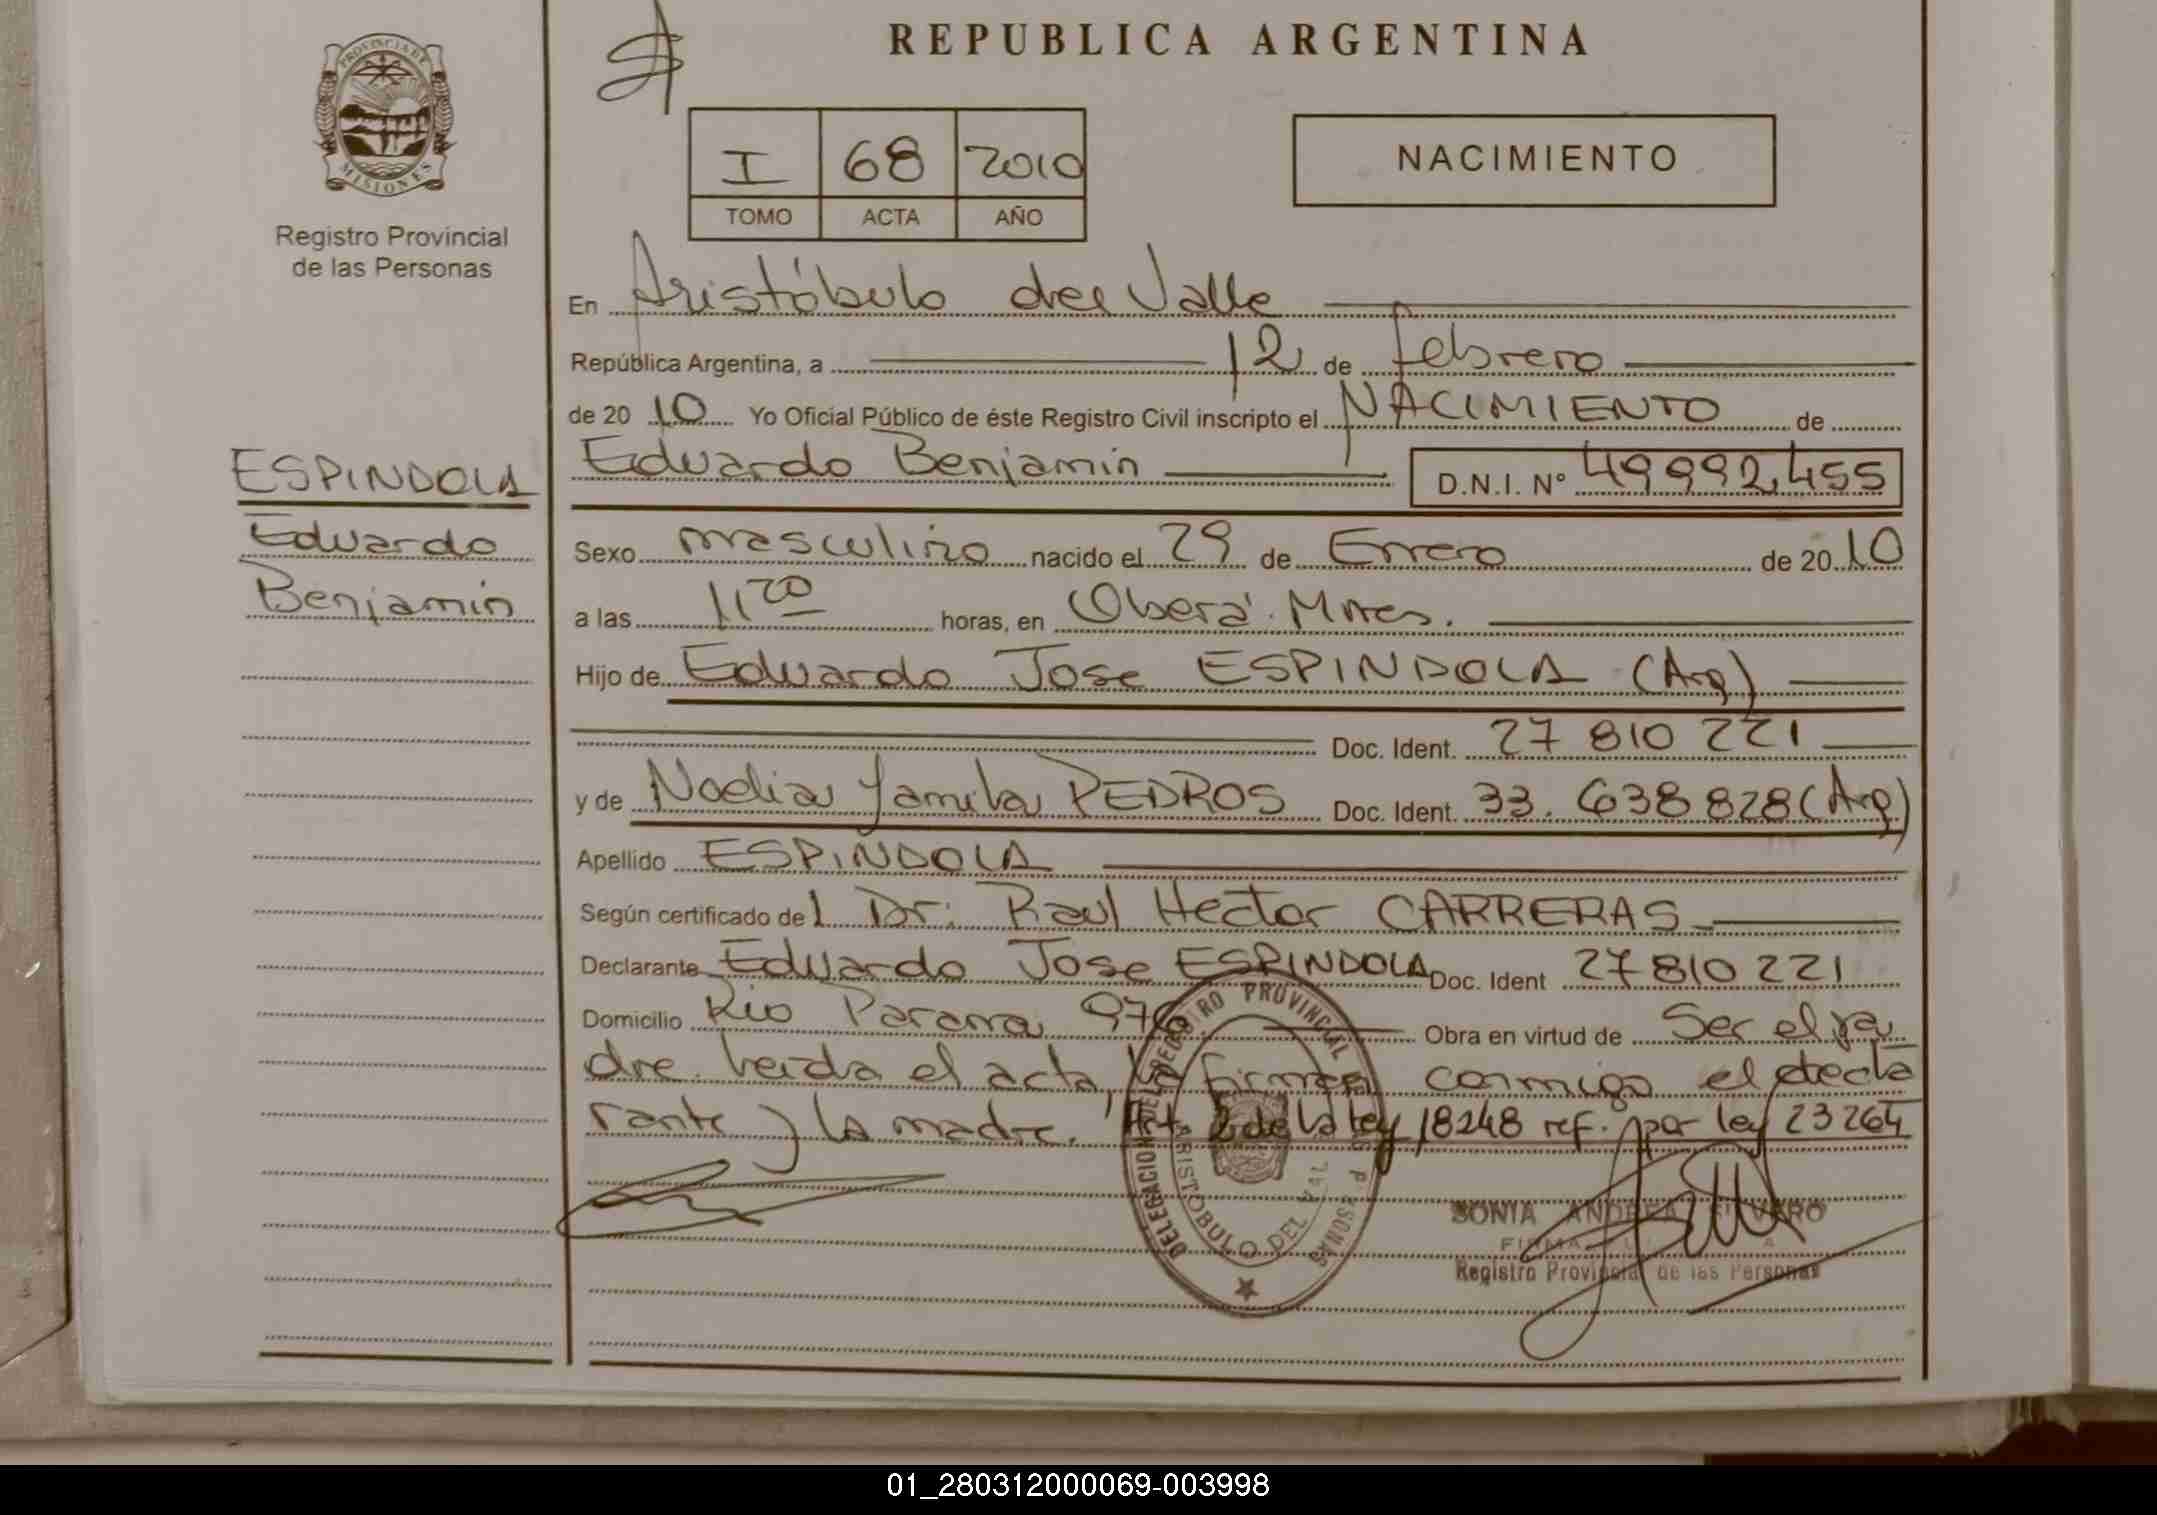 PROVINCIA DE
MISIONES
Registro Provincial
de las Personas
ESPINDOLA
Eduardo
Benjamin
REPUBLICA ARGENTINA
I 68 2010
TOMO ACTA AÑO
NACIMIENTO
En Aristóbulo del Valle
República Argentina, a 12 de febrero
de 20 10 Yo Oficial Público de éste Registro Civil inscripto el NACIMIENTO de
Eduardo Benjamin D.N.I. N° 49992.455
Sexo masculino nacido el 29 de Enero de 20 10
a las 11 20 horas, en Oberá. Mnes.
Hijo de Eduardo Jose ESPINDOLA (Arg)
Doc. Ident. 27 810 221
y de Noelia Yamila PEDROS Doc. Ident. 33. 638 828 (Arg)
Apellido ESPINDOLA
Según certificado del Dr. Raul Hector CARRERAS
Declarante Eduardo Jose ESPINDOLA Doc. Ident 27 810 221
Domicilio Rio Parana Obra en virtud de Ser el pa
dre. Leida el acta la firman conmigo el decla
rante y la madre. Art. 2 de la ley 18248 ref. por ley 23264
DELEGACION DEL REGISTRO PROVINCIAL DE LAS PERSONAS
ARISTOBULO DEL VALLE
SONIA ANDREA
FIRMA
Registro Provincial de las Personas
01_280312000069-003998